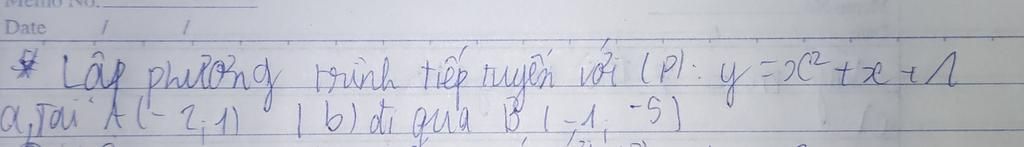 Memo No.
Date / /
* Lập phương trình tiếp tuyến với (P): y = x² + x + 1
a, Tại A(-2; 1) | b) đi qua B(-1; -5)